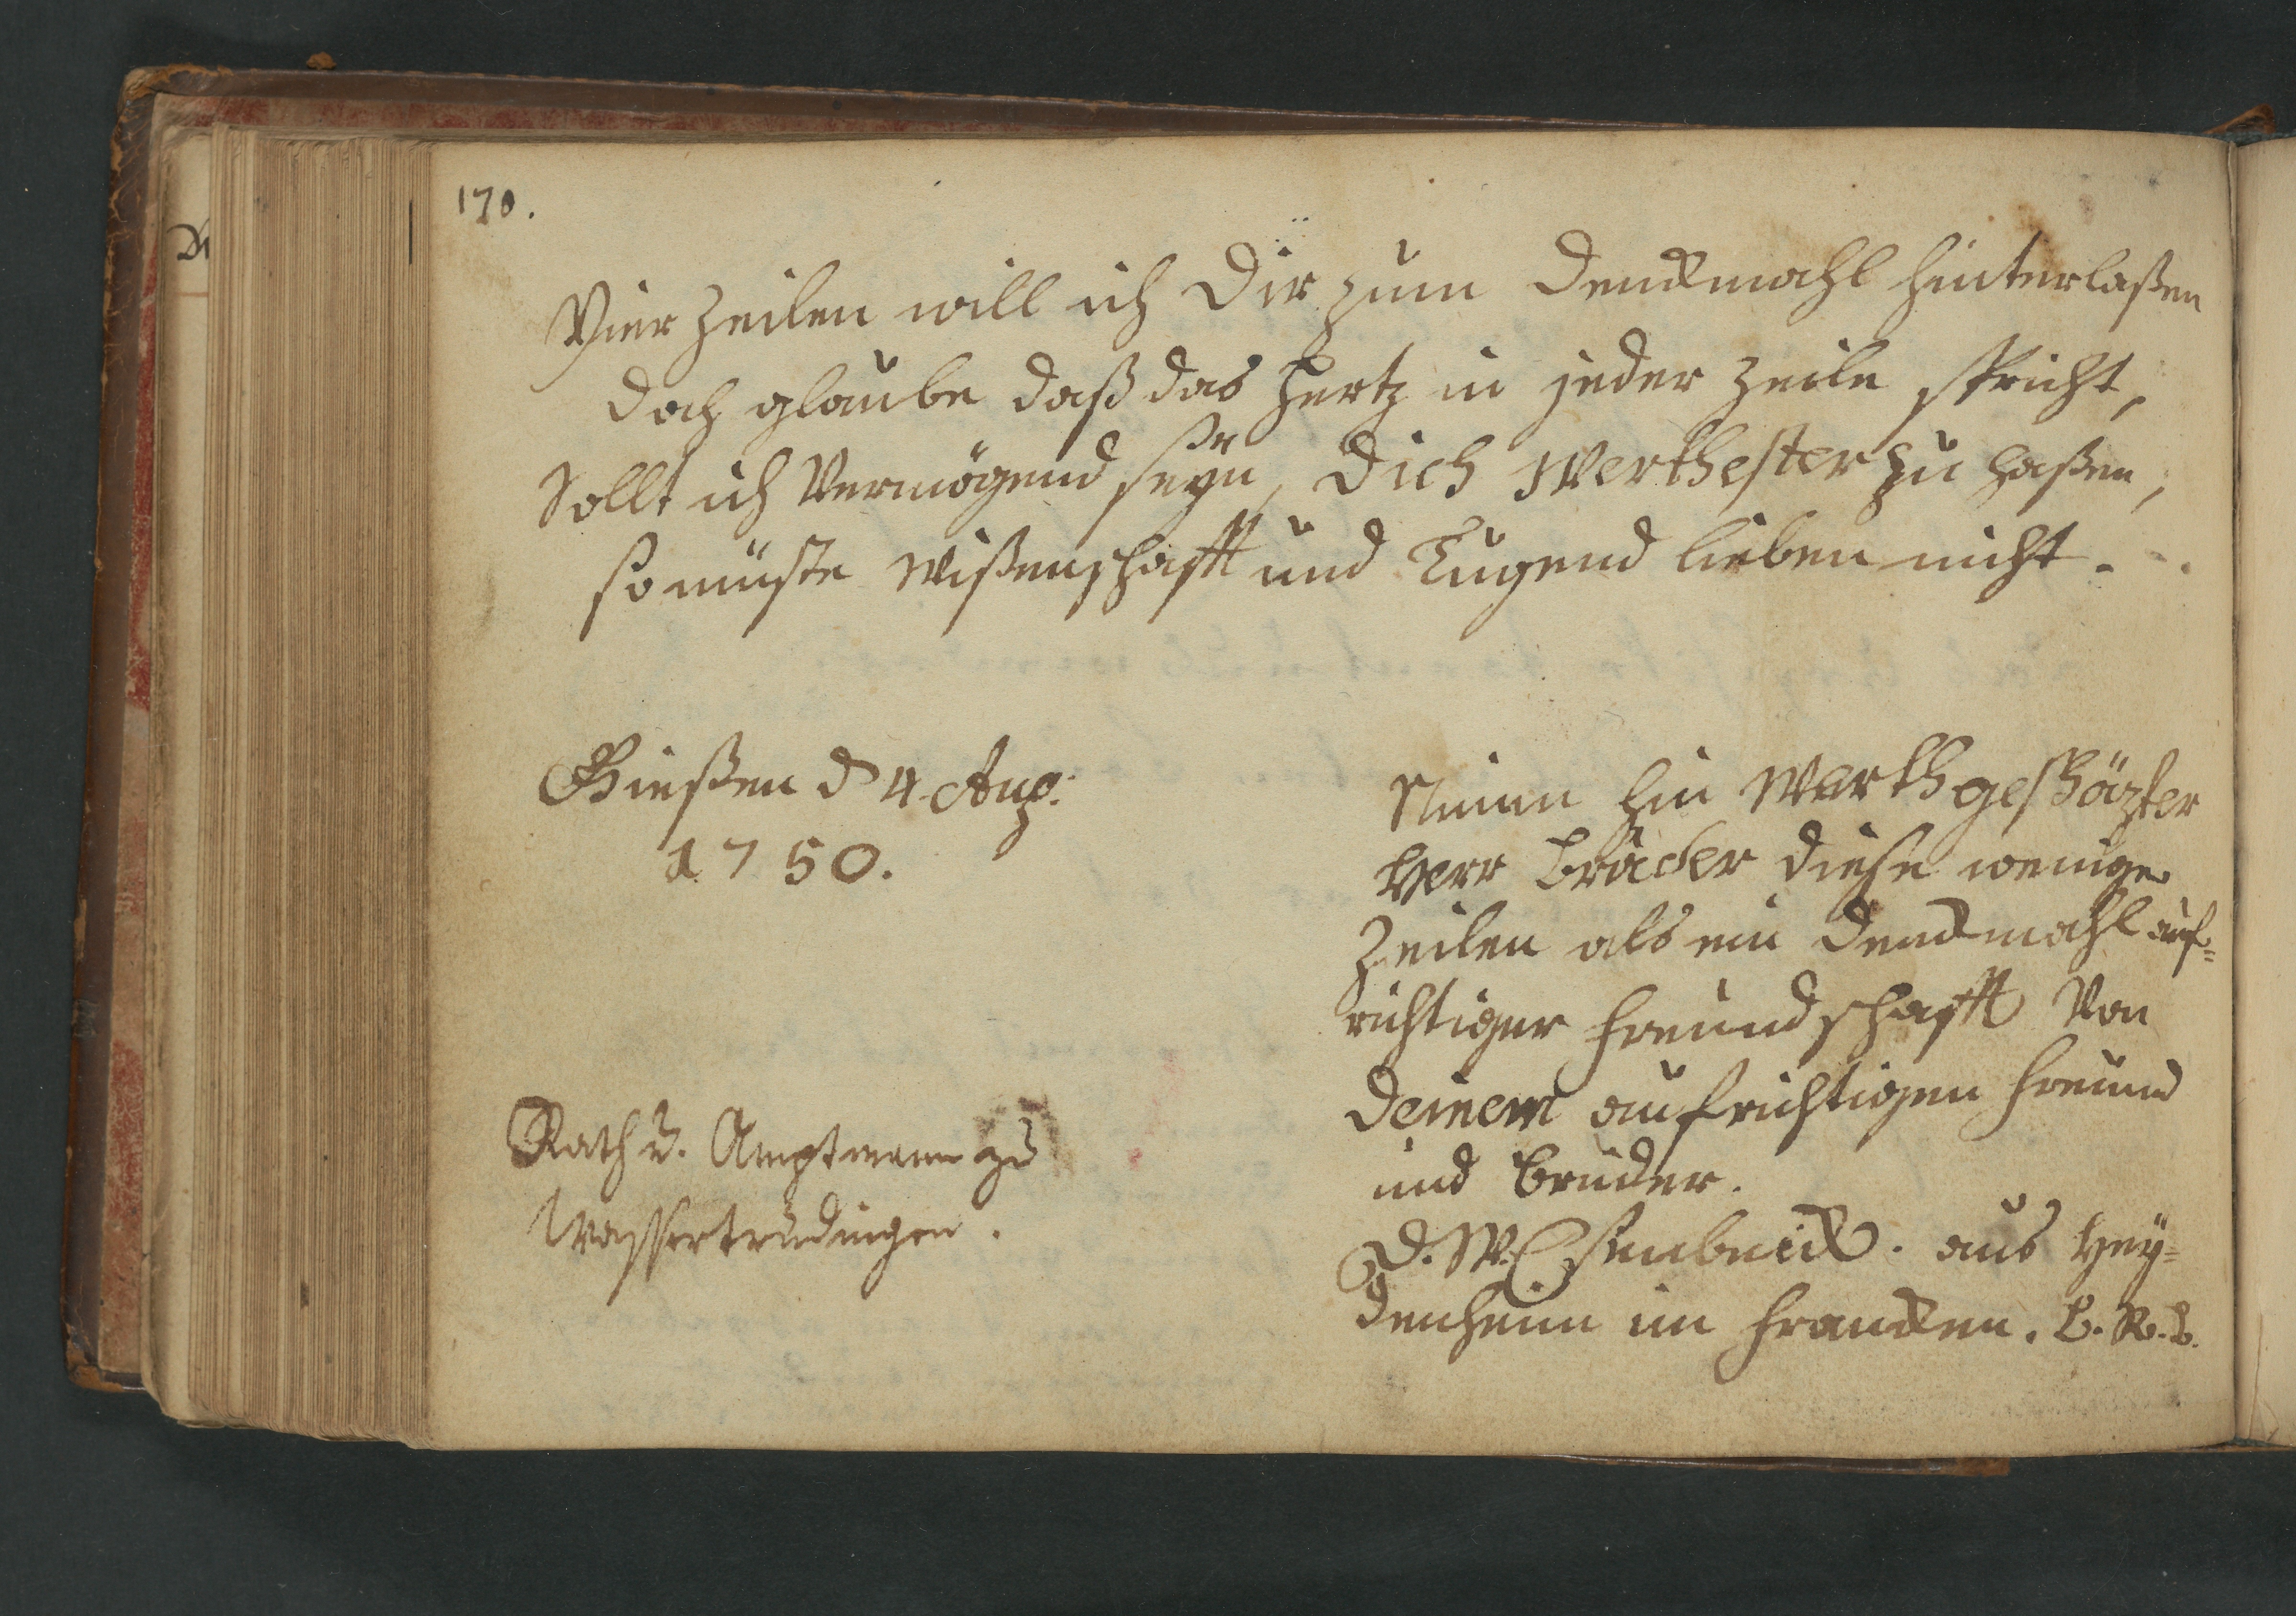 170.
Vier Zeilen will ich Dir zum Denckmahl hinterlaßen
doch glaube daß das Hertz in jeder Zeile spricht,
Sollt ich Vermögend seyn, Dich Werthester zu haßen,
so müste Wißenschafft und Tugend lieben nicht.
Gießen d 4. Aug:
1750.
Nimm hin Werthgeschäzter
Herr Bruder diese wenige
Zeilen als ein Denckmahl auf-
richtiger Freundschafft Von
Deinem aufrichtigen Freund
und Bruder.
D. W. Esenbeck. aus Hey-
denheim im Francken.
Rath u. Amptmann zu
Wassertrüdingen.